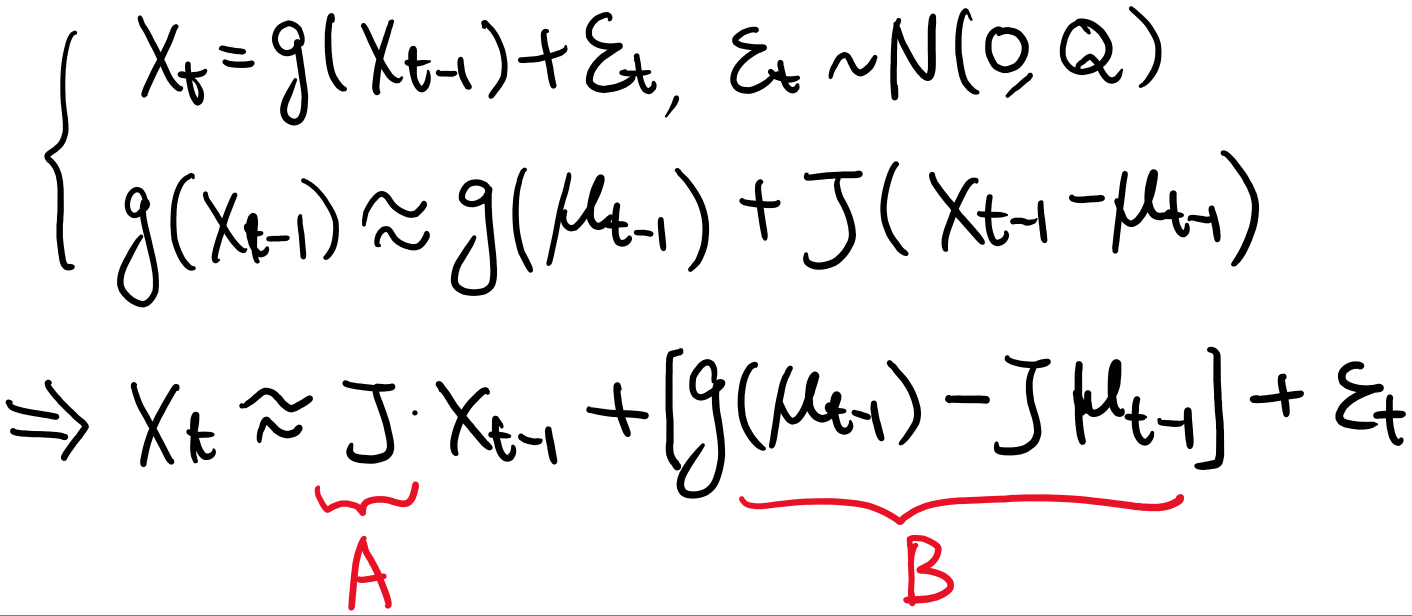 X_t = g(X_{t-1}) + ε_t, ε_t ~ N(0, Q)
g(X_{t-1}) ≈ g(μ_{t-1}) + J(X_{t-1} - μ_{t-1})
⇒ X_t ≈ J · X_{t-1} + [g(μ_{t-1}) - J μ_{t-1}] + ε_t
A B